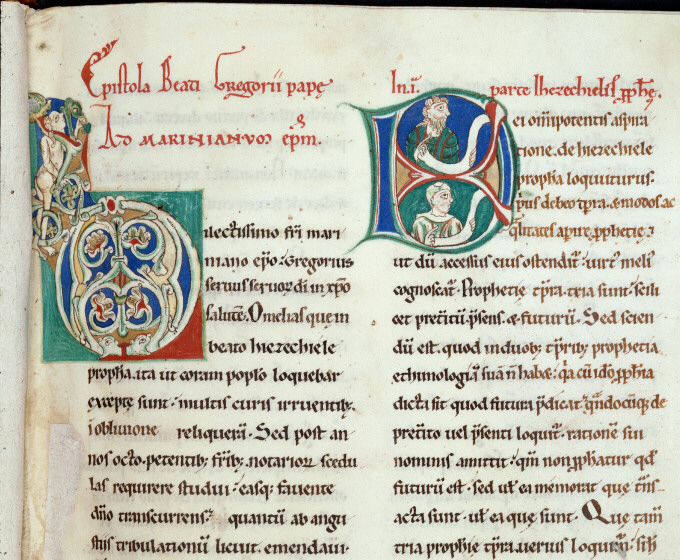 Epistola Beati Gregorii papę
Ad MARINIANVM epm̄.
Dilectissimo fr̄i mari
niano epo. Gregorius
seruus seruor di in xp̄o
salutē. Omelias que in
beato hiezechiele
propha. ita ut coram poplo loquebar
exceptę sunt. multis curis irruentib;
i obliuione reliquerā. Sed post an
nos octo. petentib; frib; notarior scedu
las requirere studui. easq; fauente
dn̄o transcurrens. quantū ab angu
stiis tribulationū licuit. emendaui.
In. i. parte Ihezechielis pphę.
Dei omipotentis aspira
tione. de hiezechiele
propha loquuturus.
prius debeo tpra. & modos ac
qlitates apire pphetię.
ut dū accessus eius ostendit. uirt meli
cognoscat. Prophetię tpra tria sunt. scili
cet pretitū. psens. & futurū. Sed scien
dū est. quod in duob; tprib; prophetia
ethimologiā suā n̄ habet. qa cū ido pphia
dicta sit quod futura pdicat. qn̄docūq; de
preterito uel psenti loquit. rationē sui
nominis amittit. qm̄ non pphatur qd
futurū est. sed ul ea memorat que tn̄s-
acta sunt. ul ea que sunt. Que tam
tria prophetię tpra uerius loquim. si h